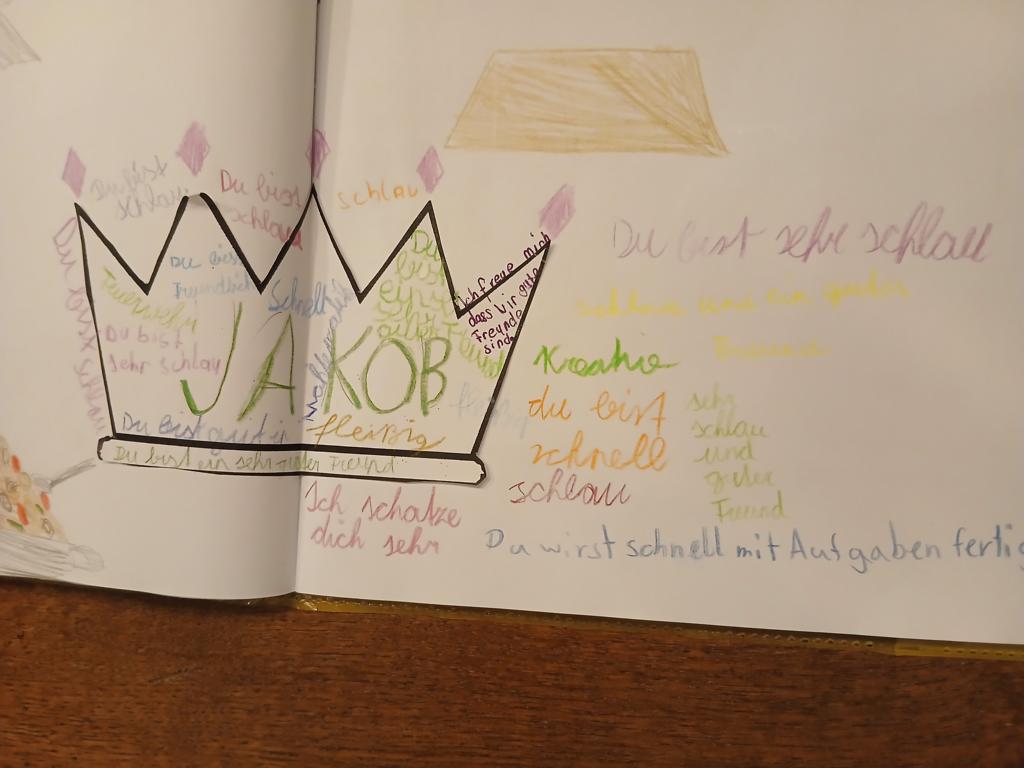 Du bist
schlau
Du bist
schlau
schlau
Du bist sehr schlau
Du bist
Freundlich
Schnell
Du
bist
ein
guter
Ich freue mich
dass wir gute
Freunde
sind
Du bist
sehr schlau
JAKOB
schlau und ein guter
Freund
Kreative
du bist
schnell
schlau
sehr
schlau
und
guter
Freund
Du bist gut in
fleißig
fleißig
Du bist ein sehr guter Freund
Ich schatze
dich sehr
Du wirst schnell mit Aufgaben fertig